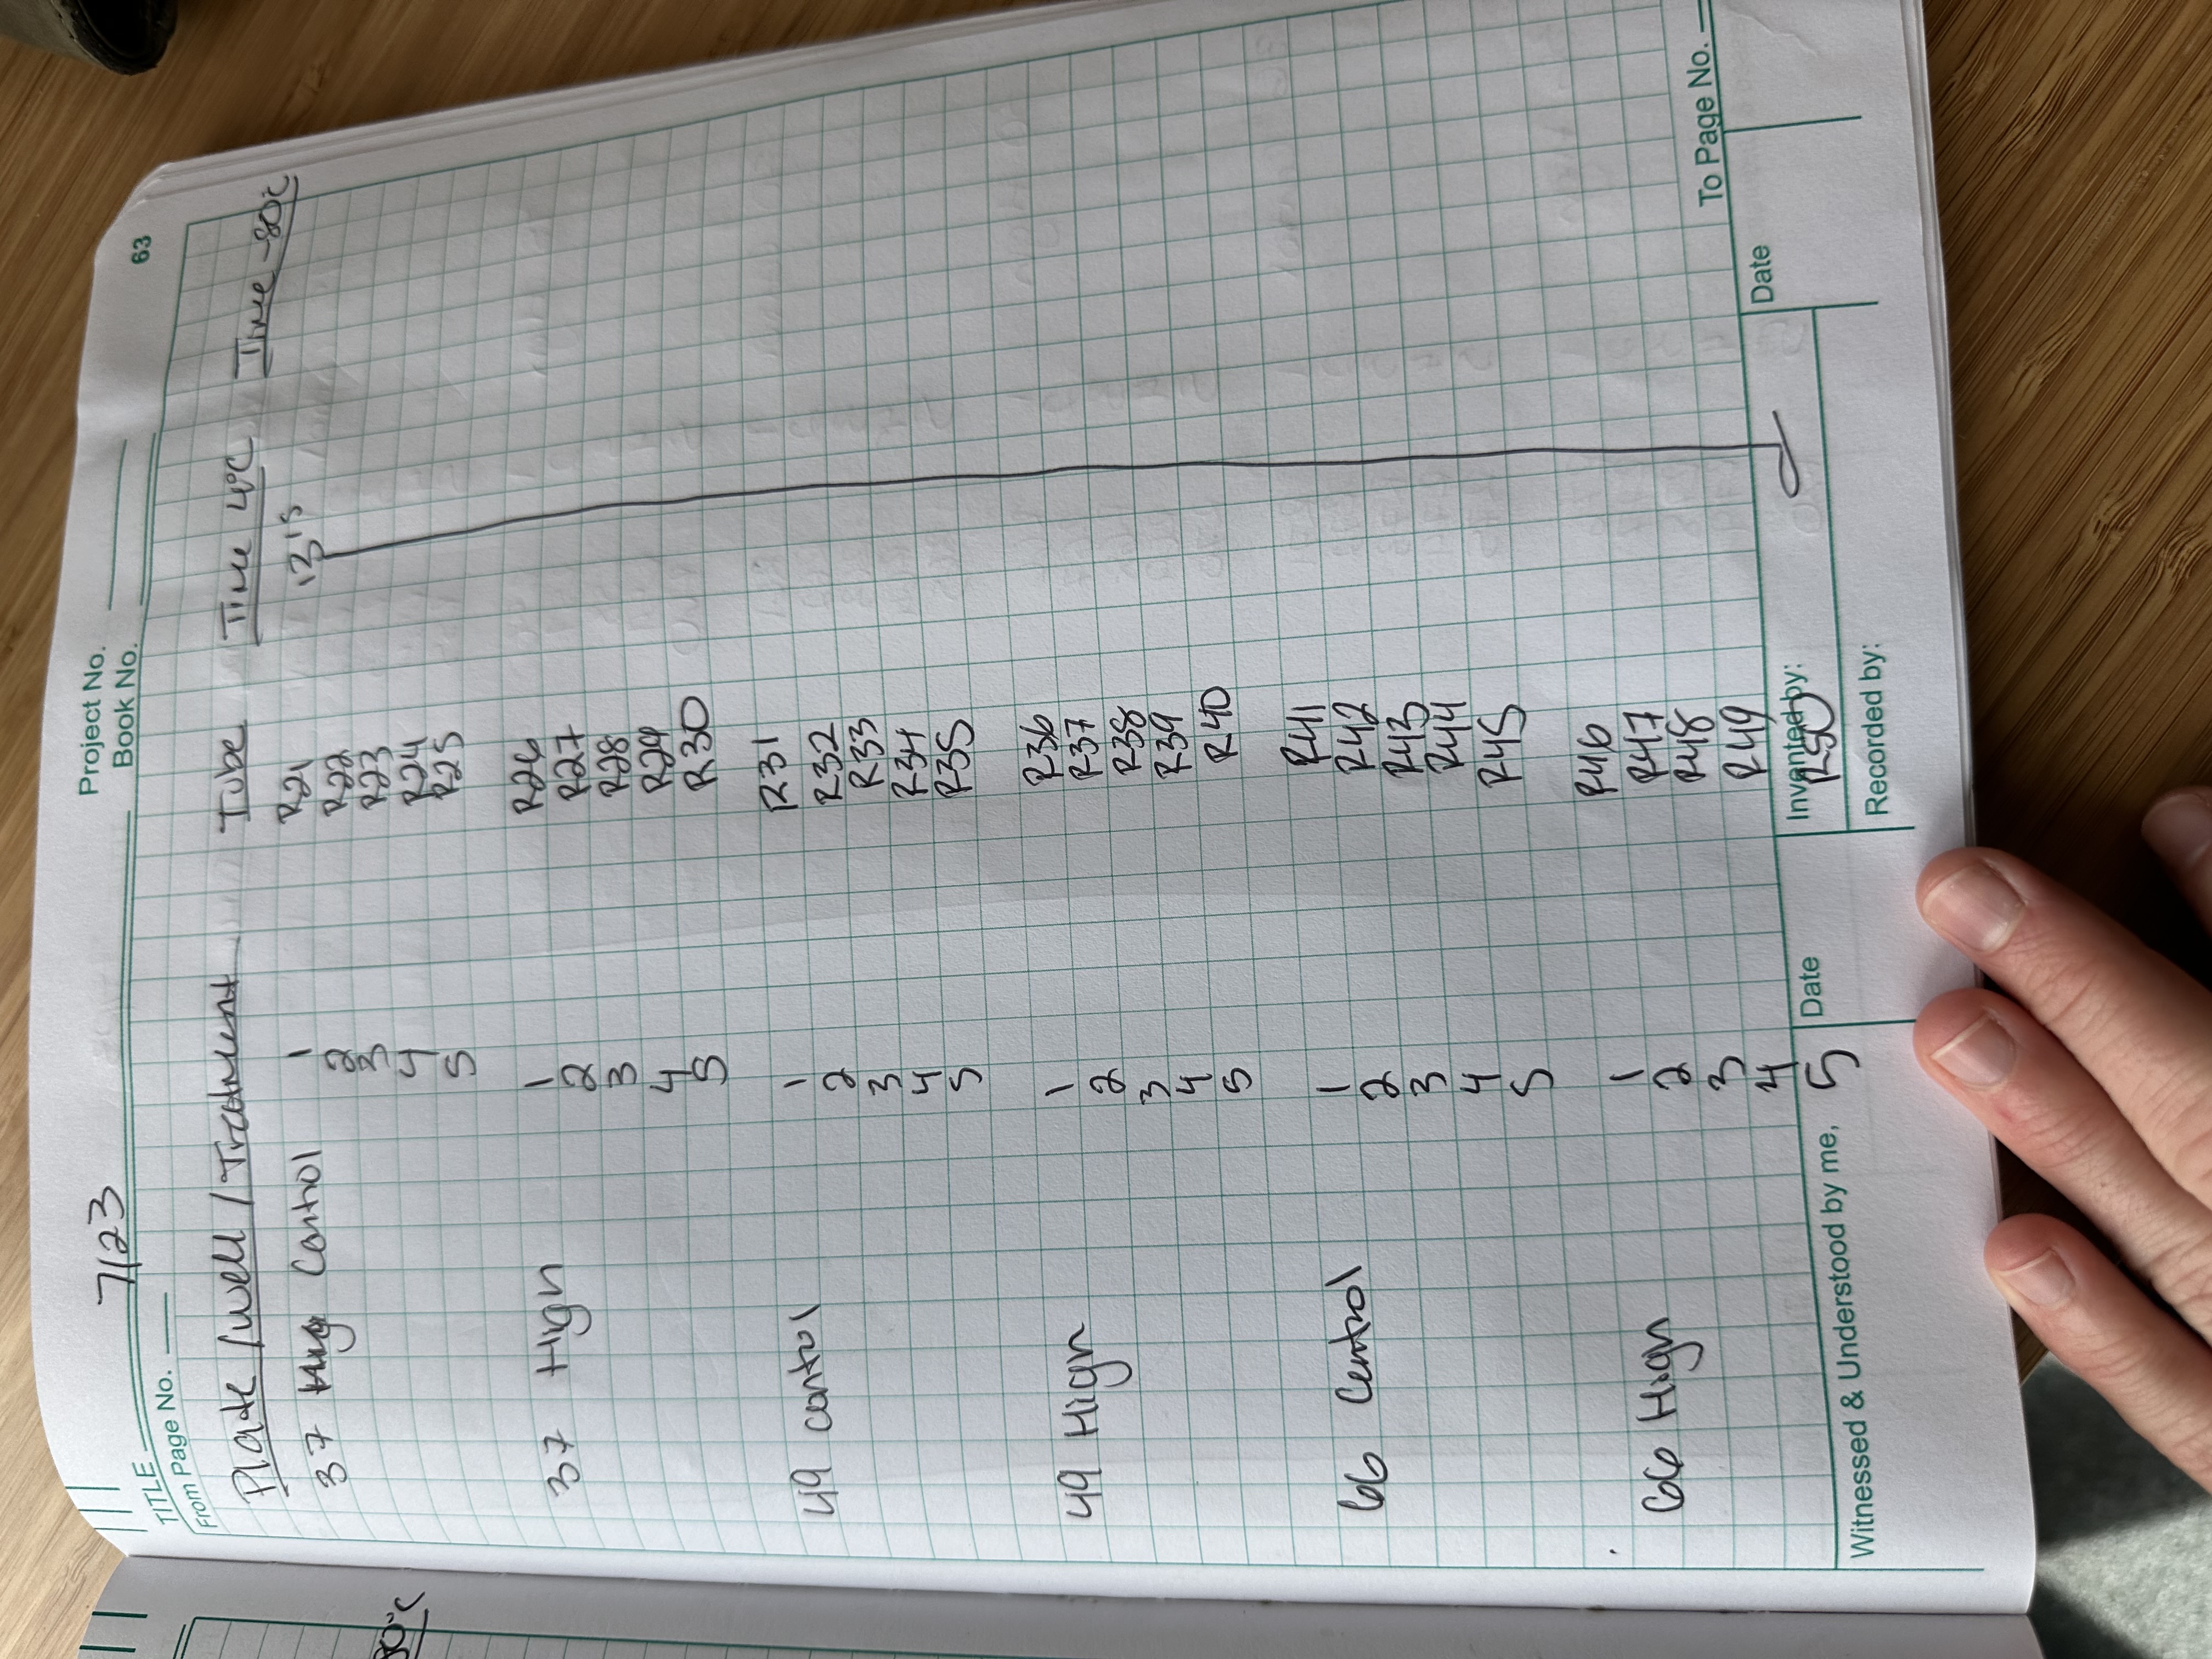 7/23
Project No.
Book No.
63
TITLE
From Page No.
Plate / Well / Treatment Tube Time 4°C Time -80°C
80°C
37 Control 1 R21 13:15
2 R22
3 R23
4 R24
5 R25
37 High 1 R26
2 R27
3 R28
4 R29
5 R30
49 control 1 R31
2 R32
3 R33
4 R34
5 R35
49 High 1 R36
2 R37
3 R38
4 R39
5 R40
66 Control 1 R41
2 R42
3 R43
4 R44
5 R45
66 High 1 R46
2 R47
3 R48
4 R49
5 R50
To Page No.
Witnessed & Understood by me,
Date
Invented by:
Date
Recorded by: